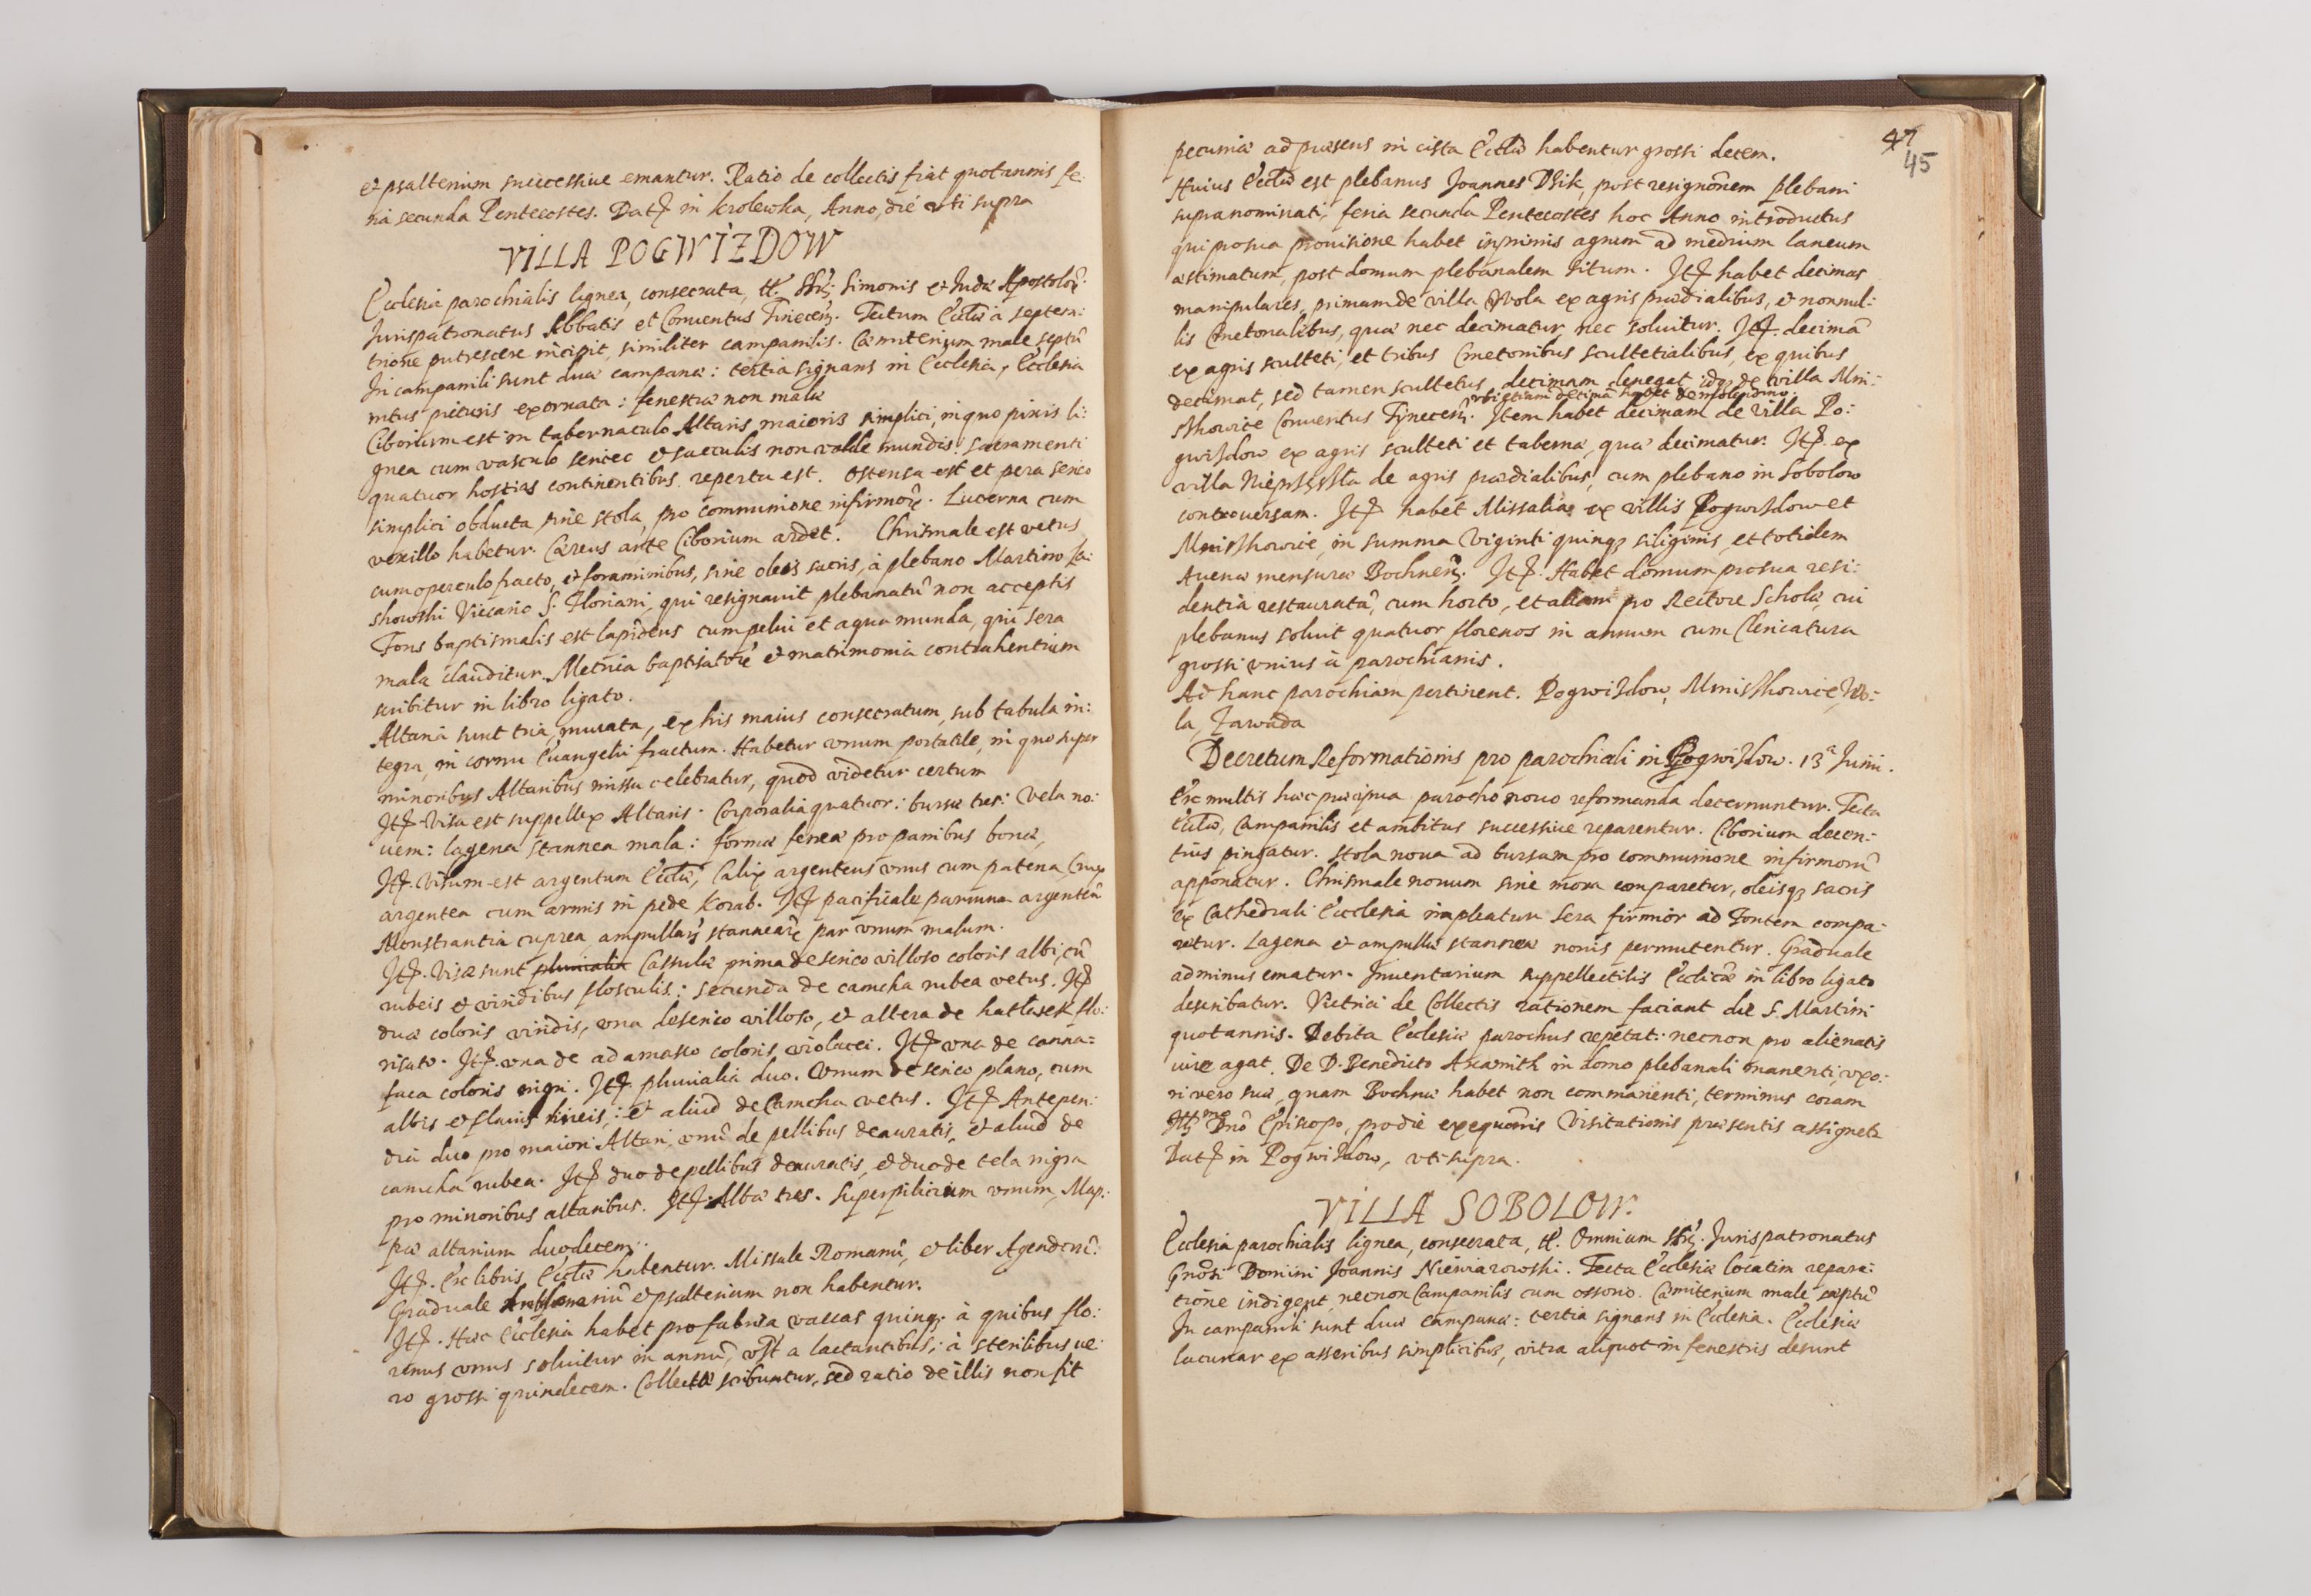 et psalterium successiue emantur. Ratio de collectis fiat quotannis fe:
ria secunda Pentecostes. Dat in Krolewka, Anno, die uti supra
VILLA POGWIZDOW
Ecclesia parochialis lignea, consecrata, tt. SSrū: Simonis et Judæ Apostolorū.
Jurispatronatus Abbatis et Conuentus Tinecen̄. Tectum Eccliæ à septem:
trione putrescere incipit, similiter campanilis. Cæmiterium male septū
In campanili sunt duæ campanæ: tertia signans in Ecclesia, Ecclesia
intus picturis exornata: fenestræ non malæ
Ciborium est in tabernaculo Altaris maioris simplici, in quo pixis li:
gnea cum vasculo sericec et saeculis non valde mundis: sacramenti
quatuor hostias continentibus reperta est. Ostensa est et pera serico
simplici obducta, sine stola, pro communione infirmorū. Lucerna cum
vexillo habetur. Cæreus ante Ciborium ardet. Chrismale est vetus
cum operculo fracto, et foraminibus, sine oleis sacris, à plebano Martino
Viccario S. Floriani, qui resignauit plebanatū non acceptis
Fons baptismalis est lapideus cum pelui et aqua munda, qui sera
mala clauditur. Metrica baptisatorū et matrimonia contrahentium
scribitur in libro ligato.
Altaria sunt tria, murata, ex his maius consecratum, sub tabula in:
tegra, in cornu Euangelii fractum. Habetur vnum portatile, in quo super
minoribus Altaribus missa celebratur, quod videtur certum
Jt Visa est suppellex Altaris. Corporalia quatuor: bursæ tres: Vela no:
uem: lagena stannea mala: forma ferrea pro panibus bona,
Jt. Visum est argentum Eccliæ, Calix argenteus vnus cum patena, Crux
argentea cum armis in pede Korab. Jt pacificale paruum argenteū
Monstrantia cuprea, ampullarū stannearū par vnum malum.
Jt. Visæ sunt pluuialia Cassulæ prima de serico villoso coloris albi, cū
rubeis et viridibus flosculis: secunda de camcha rubea vetus. Jt
duæ coloris viridis, vna de serico villoso, et altera de hatlasek flo:
risato. Jt. vna de adamasco coloris violacei. Jt vna de canna:
faca coloris nigri. Jt pluuialia duo. Vnum de serico plano, cum
albis et flauis lineis: et aliud de Camcha vetus. Jt Antepen:
dia duo pro maiori Altari, vnū de pellibus deauratis, et aliud de
camcha rubea. Jt duo de pellibus deauratis, et duo de tela nigra
pro minoribus altaribus. Jt. Albæ tres. Superpiliceum vnum, Map:
pæ altarium duodecem.
Jt. Ex libris Eccliæ habentur. Missale Romanū, et liber Agendorū:
Graduale Antiphonariū et psalterium non habentur.
Jt. Hæc Ecclesia habet pro fabrica vaccas quinq; à quibus flo:
renus vnus soluitur in annū, vt a lactantibus; à sterilibus ue:
ro grossi quindecem. Collectæ scribuntur, sed ratio de illis non fit
47
45
pecuniæ ad præsens in cista Eccliæ habentur grossi decem.
Huius Eccliæ est plebanus Joannes Dzik, post resignōnem plebani
supranominati, feria secunda Pentecostes hoc Anno introductus
qui pro sua prouisione habet inprimis agrum ad medium laneum
æstimatum, post domum plebanalem situm. Jt habet decimas
manipulares, primam de villa Wola ex agris prædialibus, et nonnul:
lis Cmetonalibus, quæ nec decimatur nec soluitur. Jt. decimā
ex agris sculteti, et tribus Cmetonibus scultetialibus, ex quibus
decimat, sed tamen scultetus decimam denegat idq; de villa Mni:
vbi etiam decimā habet de molendino.
szkowice Conuentus Tynecen̄. Item habet decimam de villa Po:
gwizdow ex agris sculteti et taberna, quæ decimatur. Jt. ex
villa de agris prædialibus, cum plebano in Sobolow
controuersam. Jt habet Missalia ex villis Pogwizdow et
Mniszkowice, in summa Viginti quinq; siliginis, et totidem
Auenæ mensuræ Bochnen̄. Jt. Habet domum pro sua resi:
dentia restauratā, cum horto, et aliam pro Rectore Scholæ, cui
plebanus soluit quatuor florenos in annum cum Clericatura
grossi vnius à parochianis.
Ad hanc parochiam pertinent. Pogwizdow, Mniszkowice, Wo:
la, Zawada
Decretum Reformationis pro parochiali in Pogwizdow. 13ª Junii.
Ex multis hæc præcipua parocho nouo reformanda decernuntur. Tecta
Eccliæ, Campanilis et ambitus successiue reparentur. Ciborium decen:
tius pingatur. Stola noua ad bursam pro communione infirmorū
apponatur. Chrismale nouum sine mora comparetur, oleisq; sacris
ex Cathedrali Ecclesia impleatur Sera firmior ad Fontem compa:
retur. Lagena et ampullæ stanneæ nouis permutentur. Graduale
adminus ematur. Inuentarium suppellectilis Ecclicæ in libro ligato
describatur. Vitrici de Collectis rationem faciant die S. Martini
quotannis. Debita Ecclesiæ parochus repetat: necnon pro alienatis
iure agat. De D. Benedicto Axamith in domo plebanali manenti, vxo:
ri vero suæ, quam Bochnæ habet non commanenti, terminus coram
Illmo Dnō Episcopo, pro die exequōnis Visitationis præsentis assignetr
Dat in Pogwizdow, vti supra.
VILLA SOBOLOW.
Ecclesia parochialis lignea, consecrata, tt. Omnium SSrū. Jurispatronatus
Gnōsi Domini Joannis Niewiarowski. Tecta Ecclesiæ locatim repara:
tione indigent, necnon Campanilis cum ossorio. Cæmiterium male septū
In campanili sunt duæ campanæ: tertia signans in Ecclesia. Ecclesiæ
lacunar ex asseribus simplicibus, vitra aliquot in fenestris desunt